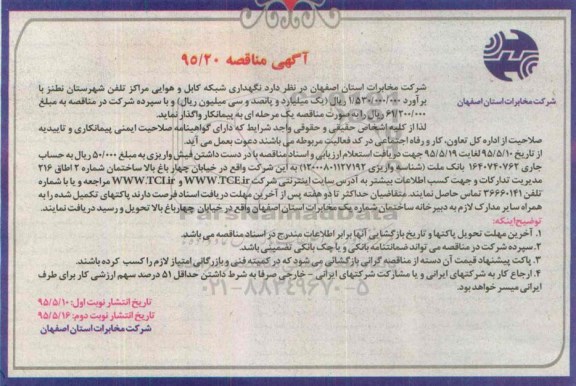 آگهی مناقصه ۹۵/۲۰
شرکت مخابرات استان اصفهان
شرکت مخابرات استان اصفهان در نظر دارد نگهداری شبکه کابل و هوایی مراکز تلفن شهرستان نطنز با
برآورد ۱/۵۳۰/۰۰۰/۰۰۰ ریال (یک میلیارد و پانصد و سی میلیون ریال) و با سپرده شرکت در مناقصه به مبلغ
۶۱/۲۰۰/۰۰۰ ریال را به صورت مناقصه یک مرحله ای به پیمانکار واگذار نماید.
لذا از کلیه اشخاص حقیقی و حقوقی واجد شرایط که دارای گواهینامه صلاحیت ایمنی پیمانکاری و تاییدیه
صلاحیت از اداره کل تعاون، کار و رفاه اجتماعی در کد فعالیت مربوطه می باشند دعوت بعمل می آید.
از تاریخ ۹۵/۵/۱۰ لغایت ۹۵/۵/۱۹ جهت دریافت استعلام ارزیابی و اسناد مناقصه با در دست داشتن فیش واریزی به مبلغ ۵۰/۰۰۰ ریال به حساب
جاری ۱۶۴۰۷۴۰۷۶۲ بانک ملت (شناسه واریزی ۱۱۲۷۱۹۲-۱۲۰۰۰۸) به این شرکت واقع در خیابان چهار باغ بالا ساختمان شماره ۲ اطاق ۲۱۶
مدیریت تدارکات و جهت کسب اطلاعات بیشتر به آدرس سایت اینترنتی شرکت WWW.TCE.ir و WWW.TCI.ir مراجعه و یا با شماره
تلفن ۳۶۶۶۰۱۴۱ تماس حاصل نمایند. متقاضیان حداکثر تا دو هفته پس از آخرین مهلت دریافت اسناد فرصت دارند پاکتهای تکمیل شده را به
همراه سایر مدارک لازم به دبیرخانه ساختمان شماره یک مخابرات استان اصفهان واقع در خیابان چهارباغ بالا تحویل و رسید دریافت نمایند.
توضیح اینکه:
۱. آخرین مهلت تحویل پاکتها و تاریخ بازگشایی آنها برابر اطلاعات مندرج در اسناد مناقصه می باشد.
۲. سپرده شرکت در مناقصه می تواند ضمانتنامه بانکی و یا چک بانکی تضمینی باشد.
۳. پاکت پیشنهاد قیمت آن دسته از مناقصه گرانی بازگشائی می شود که در کمیته فنی و بازرگانی امتیاز لازم را کسب کرده باشند.
۴. ارجاع کار به شرکتهای ایرانی و یا مشارکت شرکتهای ایرانی - خارجی صرفا به شرط داشتن حداقل ۵۱ درصد سهم ارزشی کار برای طرف
ایرانی میسر خواهد بود.
تاریخ انتشار نوبت اول: ۹۵/۵/۱۰
تاریخ انتشار نوبت دوم: ۹۵/۵/۱۶
شرکت مخابرات استان اصفهان
ParsNamadData
۰۲۱-۸۸۳۴۹۶۷۰-۵